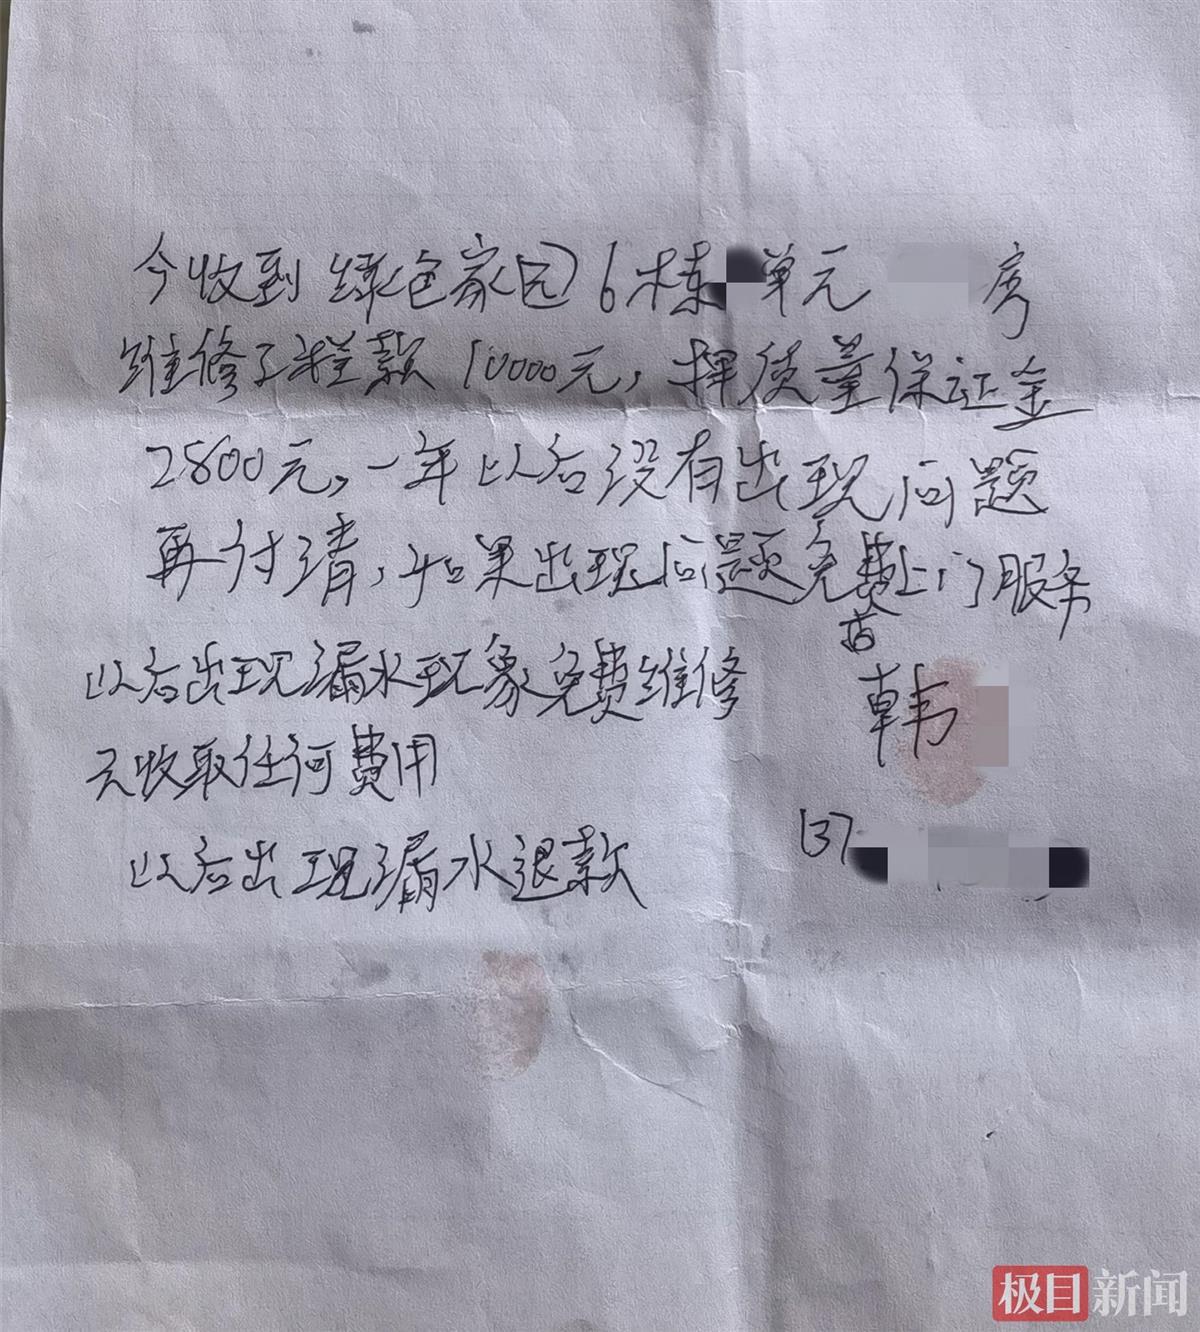 今收到绿色家园6栋 单元 房
维修工程款10000元，押质量保证金
2800元，一年以后没有出现问题
再付清，如果出现问题免费上门服务
以后出现漏水现象免费维修
不收取任何费用
韩
以后出现漏水退款
137
极目新闻